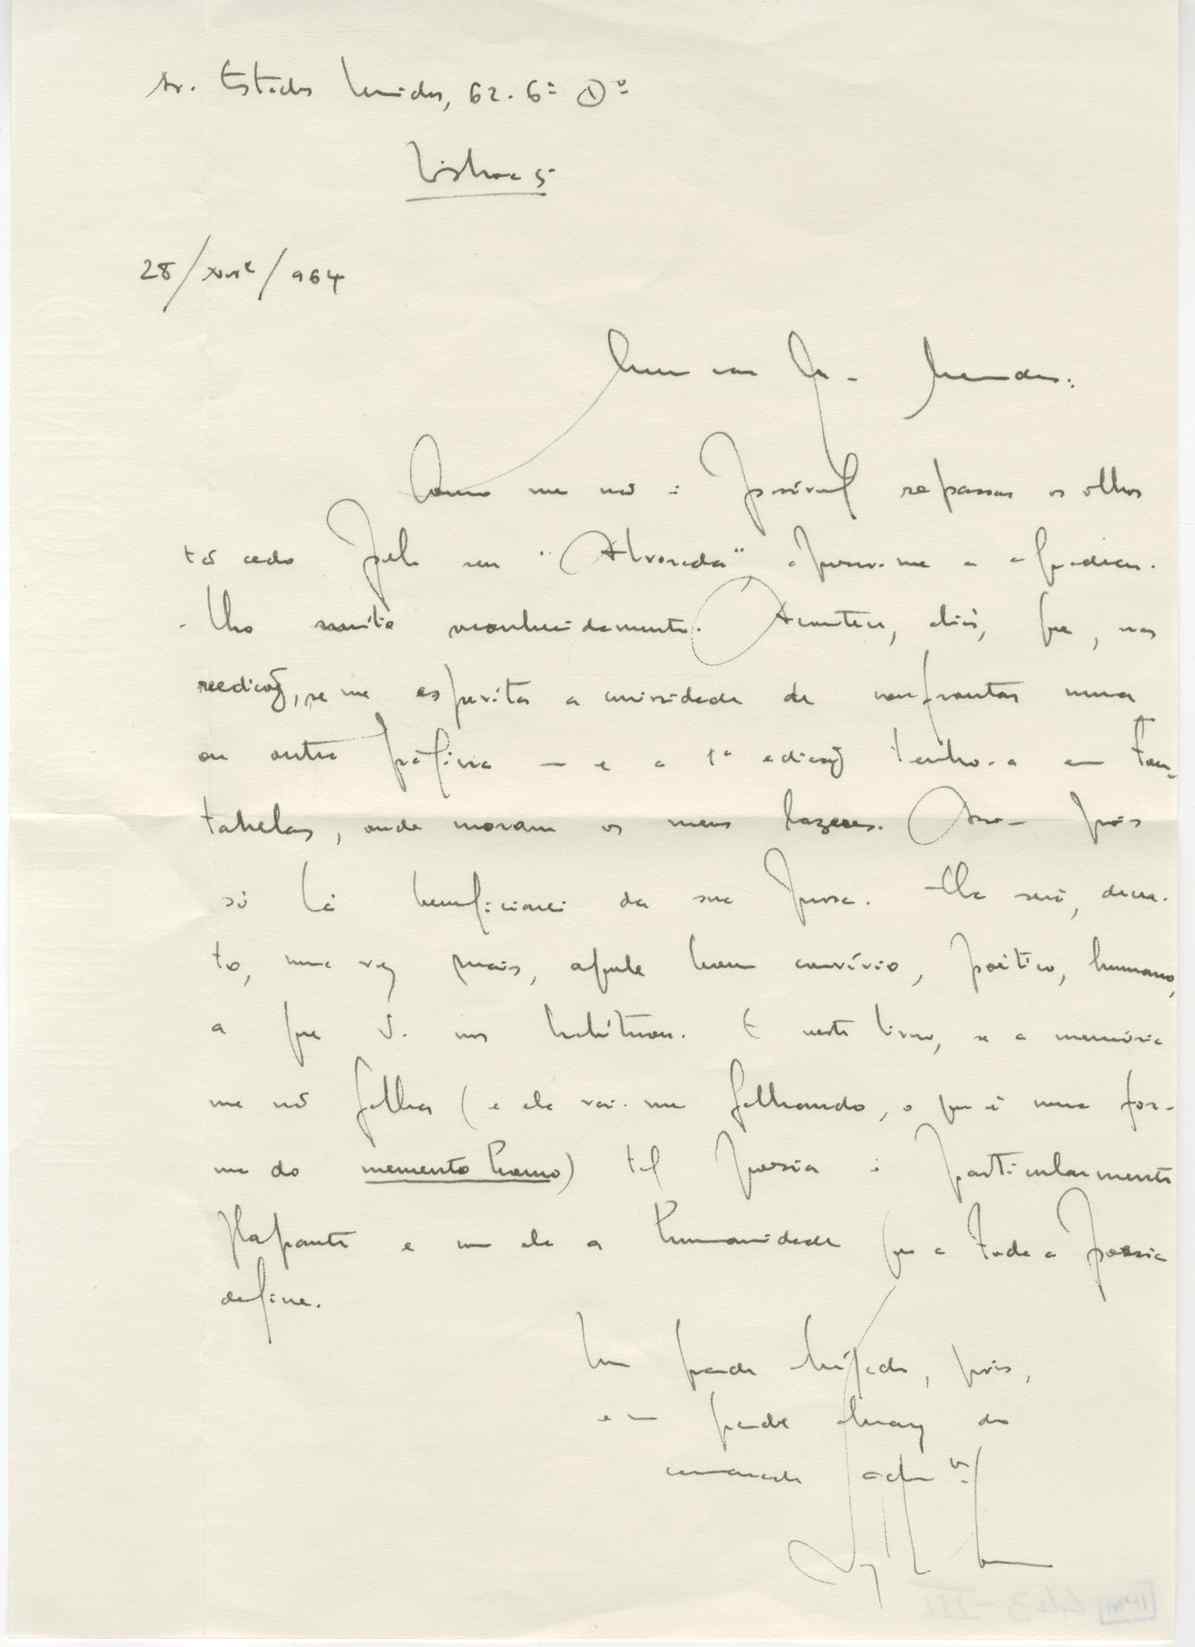 Av. Estados Unidos, 62. 6º D.º
Lisboa 5
28/ /964
Meu caro Mendes:
Como me não é possível repassar os olhos
tão cedo pelo seu "Alvorada" a agradecer-
-lho muito reconhecidamente. Acontece, aliás, que, nas
reedições, se me espevita a curiosidade de confrontar uma
ou outra página — e a 1ª edição tenho-a em Can-
tanhede, onde moram os meus lazeres. pois
só lá beneficiarei da sua prosa. Ela será, decer-
to, uma vez mais, aquele bom convívio, poético, humano,
a que V. nos habituou. E neste livro, se a memória
me não falha (e ela vai-me falhando, o que é uma for-
ma do memento homo) tal poesia é particularmente
flagrante e com ela a humanidade que a toda a Poesia
define.
Um grande obrigado, pois,
e um grande abraço do
camarada